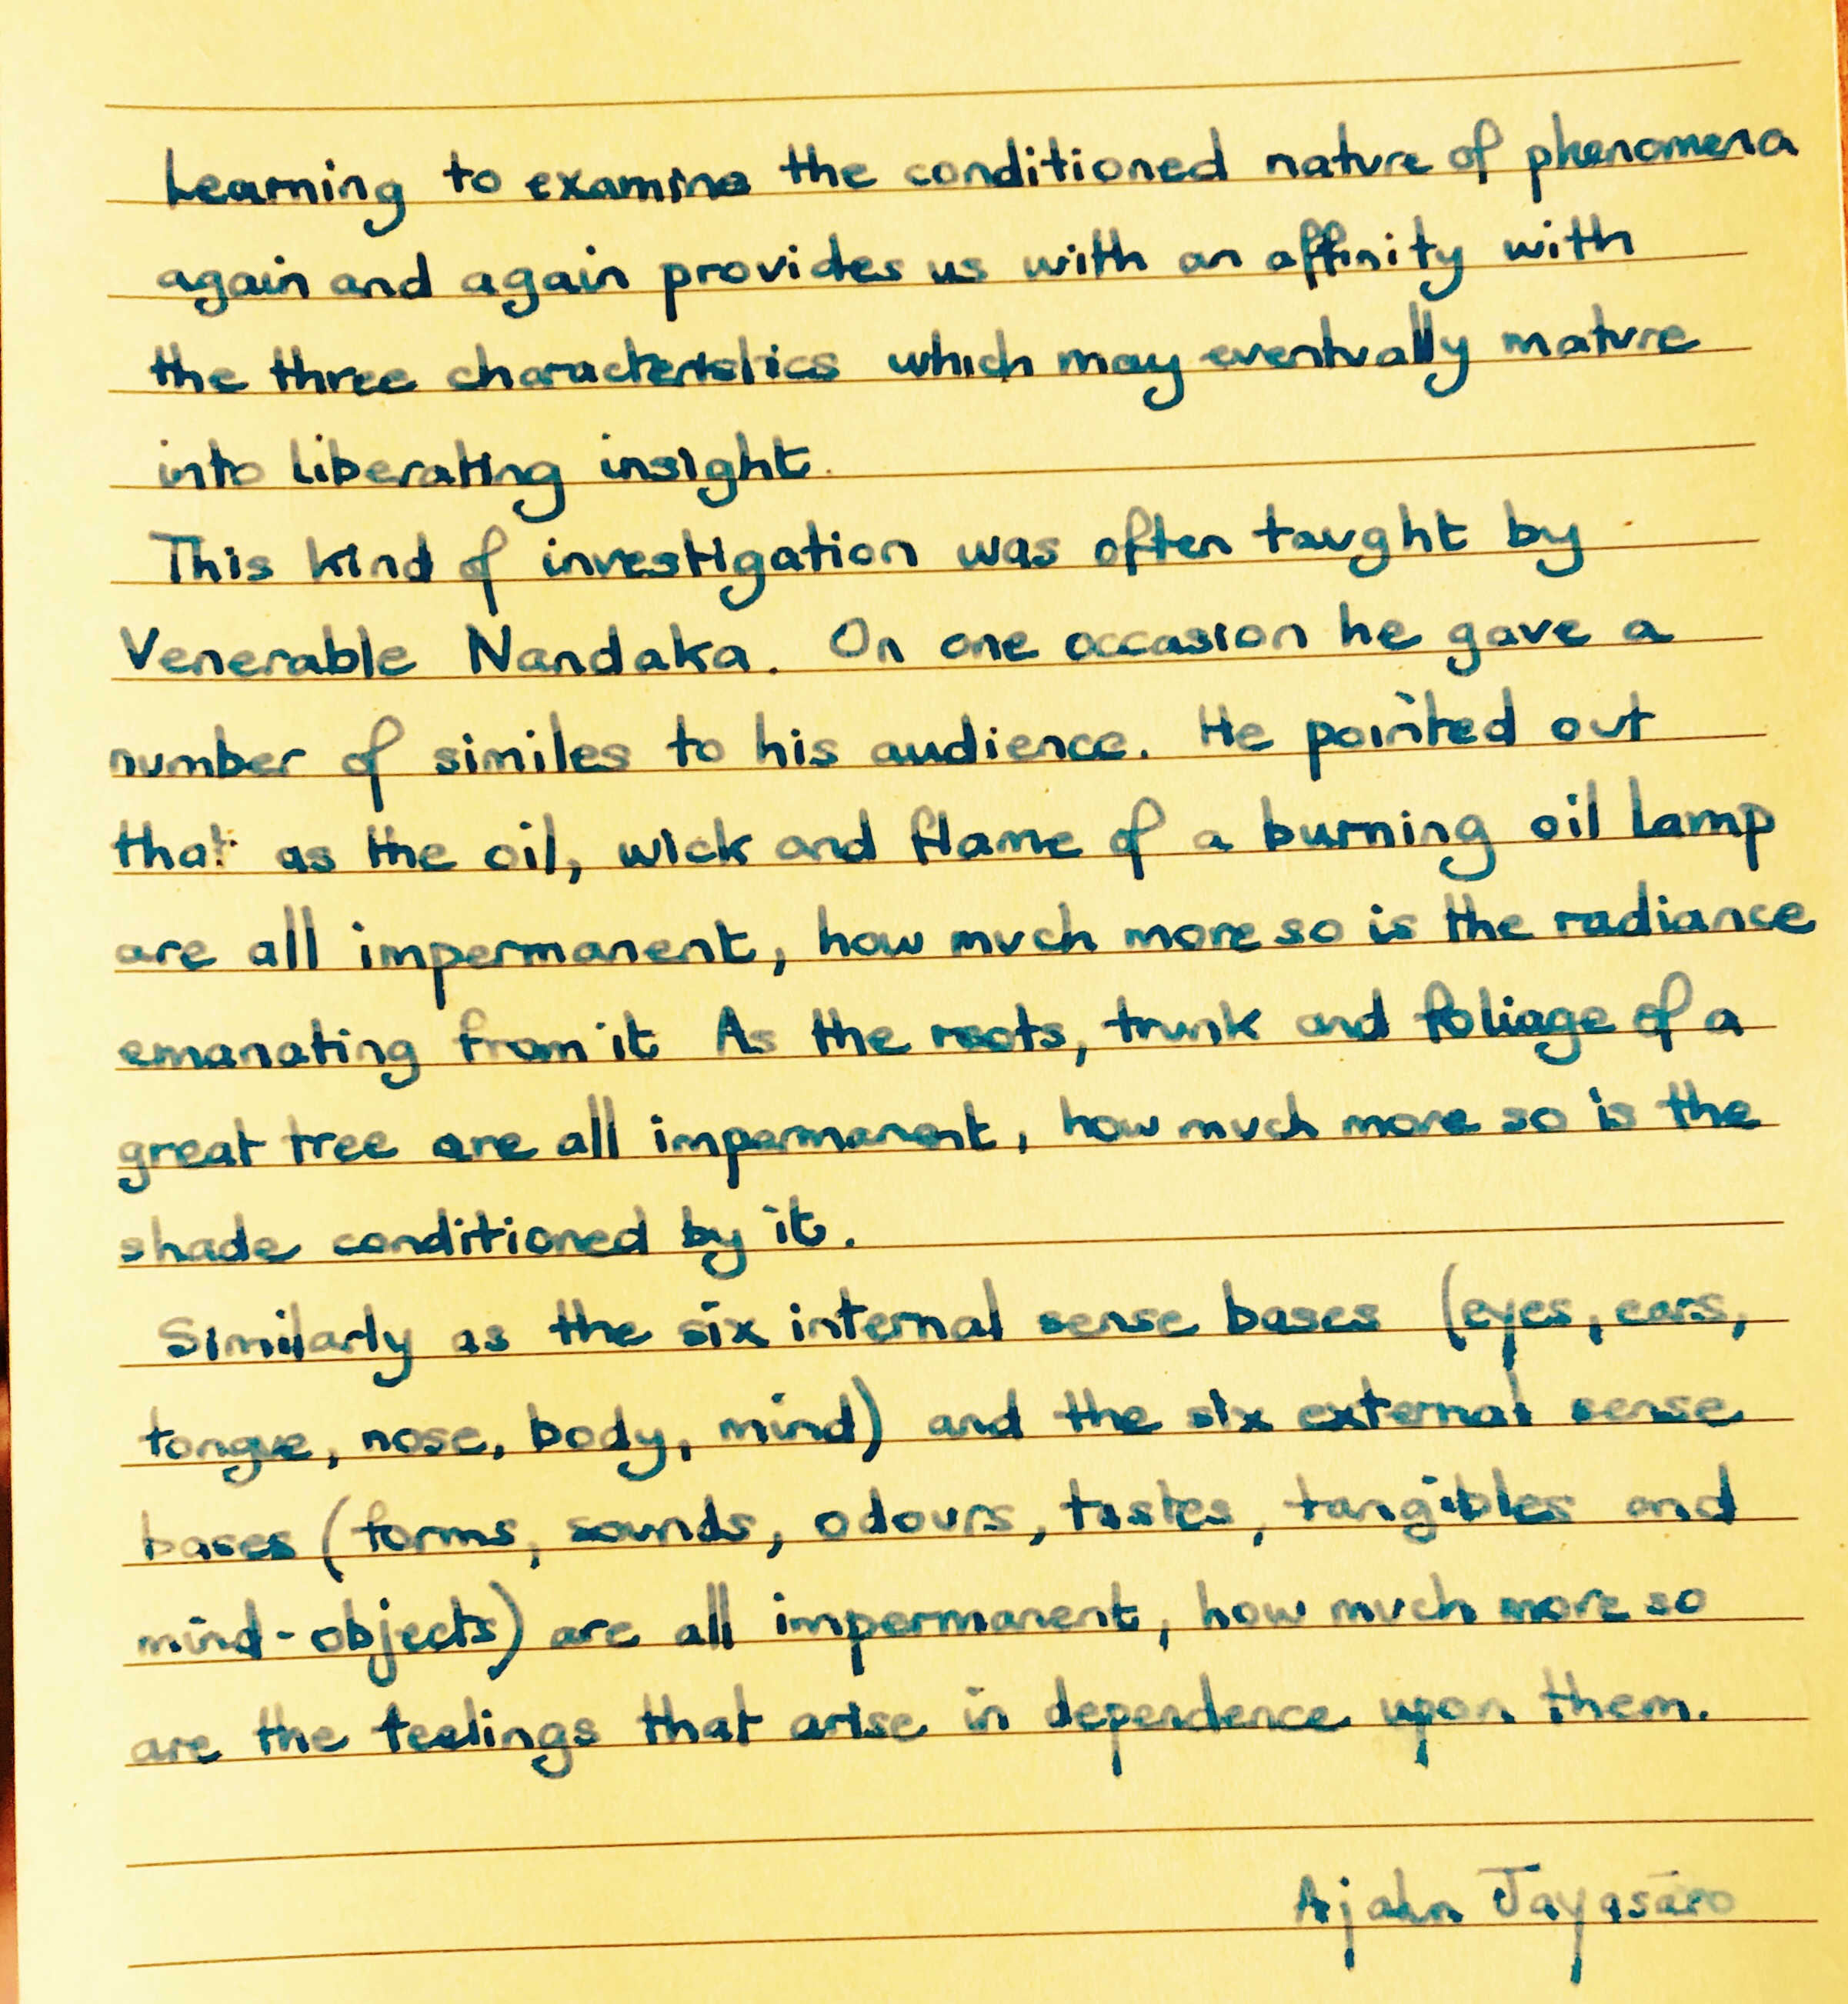 Learning to examine the conditioned nature of phenomena
again and again provides us with an affinity with
the three characteristics which may eventually mature
into liberating insight.
This kind of investigation was often taught by
Venerable Nandaka. On one occasion he gave a
number of similes to his audience. He pointed out
that as the oil, wick and flame of a burning oil lamp
are all impermanent, how much more so is the radiance
emanating from it As the roots, trunk and foliage of a
great tree are all impermanent, how much more so is the
shade conditioned by it.
Similarly as the six internal sense bases (eyes, ears,
tongue, nose, body, mind) and the six external sense
bases (forms, sounds, odours, tastes, tangibles and
mind-objects) are all impermanent, how much more so
are the feelings that arise in dependence upon them.
Ajahn Jayasāro